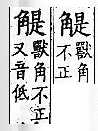 䚣
獸角
不正
䚣
獸角不正
又音低